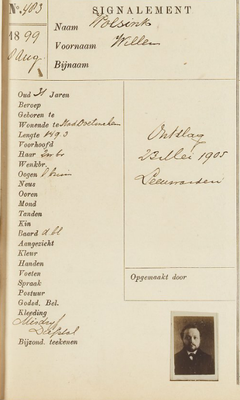 Nº. 483
SIGNALEMENT
1899
Aug
Naam Wolsink
Voornaam Willem
Bijnaam
Oud 31 Jaren
Beroep
Geboren te
Wonende te Stad Doetinchem
Lengte 1.49.3
Voorhoofd
Haar
Wenkbr.
Oogen l bruin
Neus
Ooren
Mond
Tanden
Kin
Baard d bl
Aangezicht
Kleur
Handen
Voeten
Spraak
Postuur
Godsd. Bel.
Kleeding
Misdrijf
Diefstal
Bijzond. teekenen
Ontslag
23 Mei 1905
Leeuwarden
Opgemaakt door